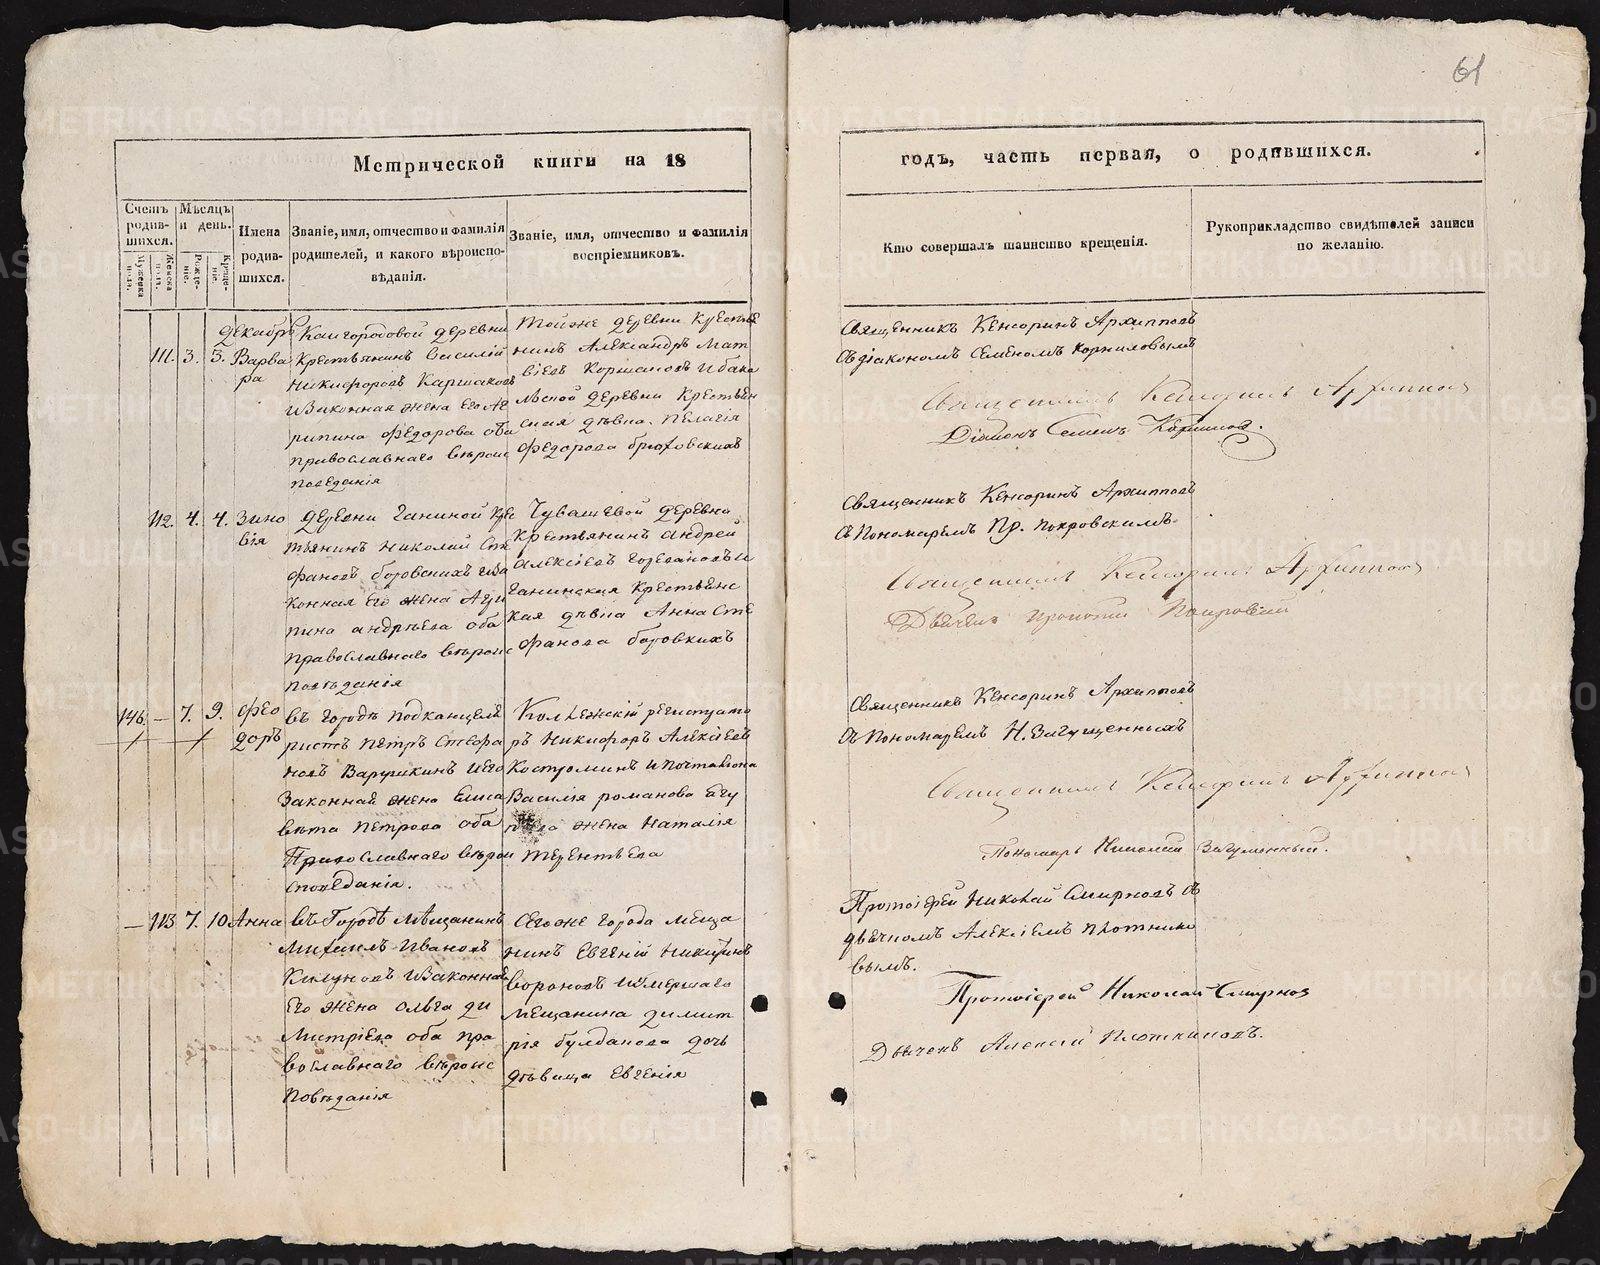 61
Метрической книги на 18
годъ, часть первая, о родившихся.
Счетъ родив-шихся.
Мужеска полъ.
Женска полъ.
Мѣсяцъ и день.
Рожде-ніе.
Креще-ніе.
Имена родив-шихся.
Званіе, имя, отчество и фамилія родителей, и какого вѣроиспо-вѣданія.
Званіе, имя, отчество и фамилія воспріемниковъ.
Кто совершалъ таинство крещенія.
Рукоприкладство свидѣтелей записи по желанію.
Декабрь
111. 3. 3. Варва
ра
Кайгородовой деревни
Крестьянинъ Василій
Никифоровъ Каршаковъ
и Законная жена его Аг
рипина Федорова оба
православнаго вѣроис
поведанія
Тойже деревни Кресть
нинъ Александръ Мат
вiевъ Коршаковъ и
деревни Крестьян
ская дѣвка. Пелагія
Федорова
Священникъ Кенсоринъ Архиповъ
съ діакономъ Семеномъ Корниловымъ
Священникъ Кенсоринъ Архиповъ
Діаконъ Семенъ Корниловъ.
112. 4. 4. Зино
вія
деревни Ганиной Кре
тьянинъ Николай Сте
фановъ Боровскихъ и За
конная Его жена Агри
пина Андрѣева оба
православнаго вѣроис
повѣданія
Чувашевой деревни
Крестьянинъ Андрей
Алексіевъ и
Ганинская Крестьянс
кая дѣвка Анна Сте
фанова Боровкихъ
Священникъ Кенсоринъ Архиповъ
съ Пономаремъ Пр. Покровскимъ.
Священникъ Кенсоринъ Архиповъ
Дьячекъ Покровскій
146. — 7. 9. Фео
доръ
въ городѣ подканцеля
ристъ Петръ Стефа
новъ и его
Законная жена Елиса
вѣта Петрова оба
Православнаго вѣрои
споведанія.
Колежскій регистрато
ръ Никифоръ Алексіевъ
Костроминъ и почталіона
Василія Романова
жена Наталія
Терентьева
Священникъ Кенсоринъ Архиповъ
съ Пономаремъ Н. Загуменныхъ
Священникъ Кенсоринъ Архиповъ
Пономарь Николай Загуменный.
— 113 7. 10. Анна
въ Городѣ Мѣщанинъ
Михаилъ Ивановъ
и Законная
Его жена Ольга Ди
митріева оба пра
вославнаго вѣроис
повѣданія
Сегоже города Меща
нинъ Евгеній Никитинъ
Вороновъ и умершаго
Мещанина Димит
рія Булданова дочь
дѣвица Евгенія
Протоіерей Николай Смирновъ съ
дьячкомъ Алексіемъ Плотнико
вымъ.
Протоіерей Николай Смирнов
Дьячекъ Алексій Плотниковъ.
METRIKI.GASO-URAL.RU